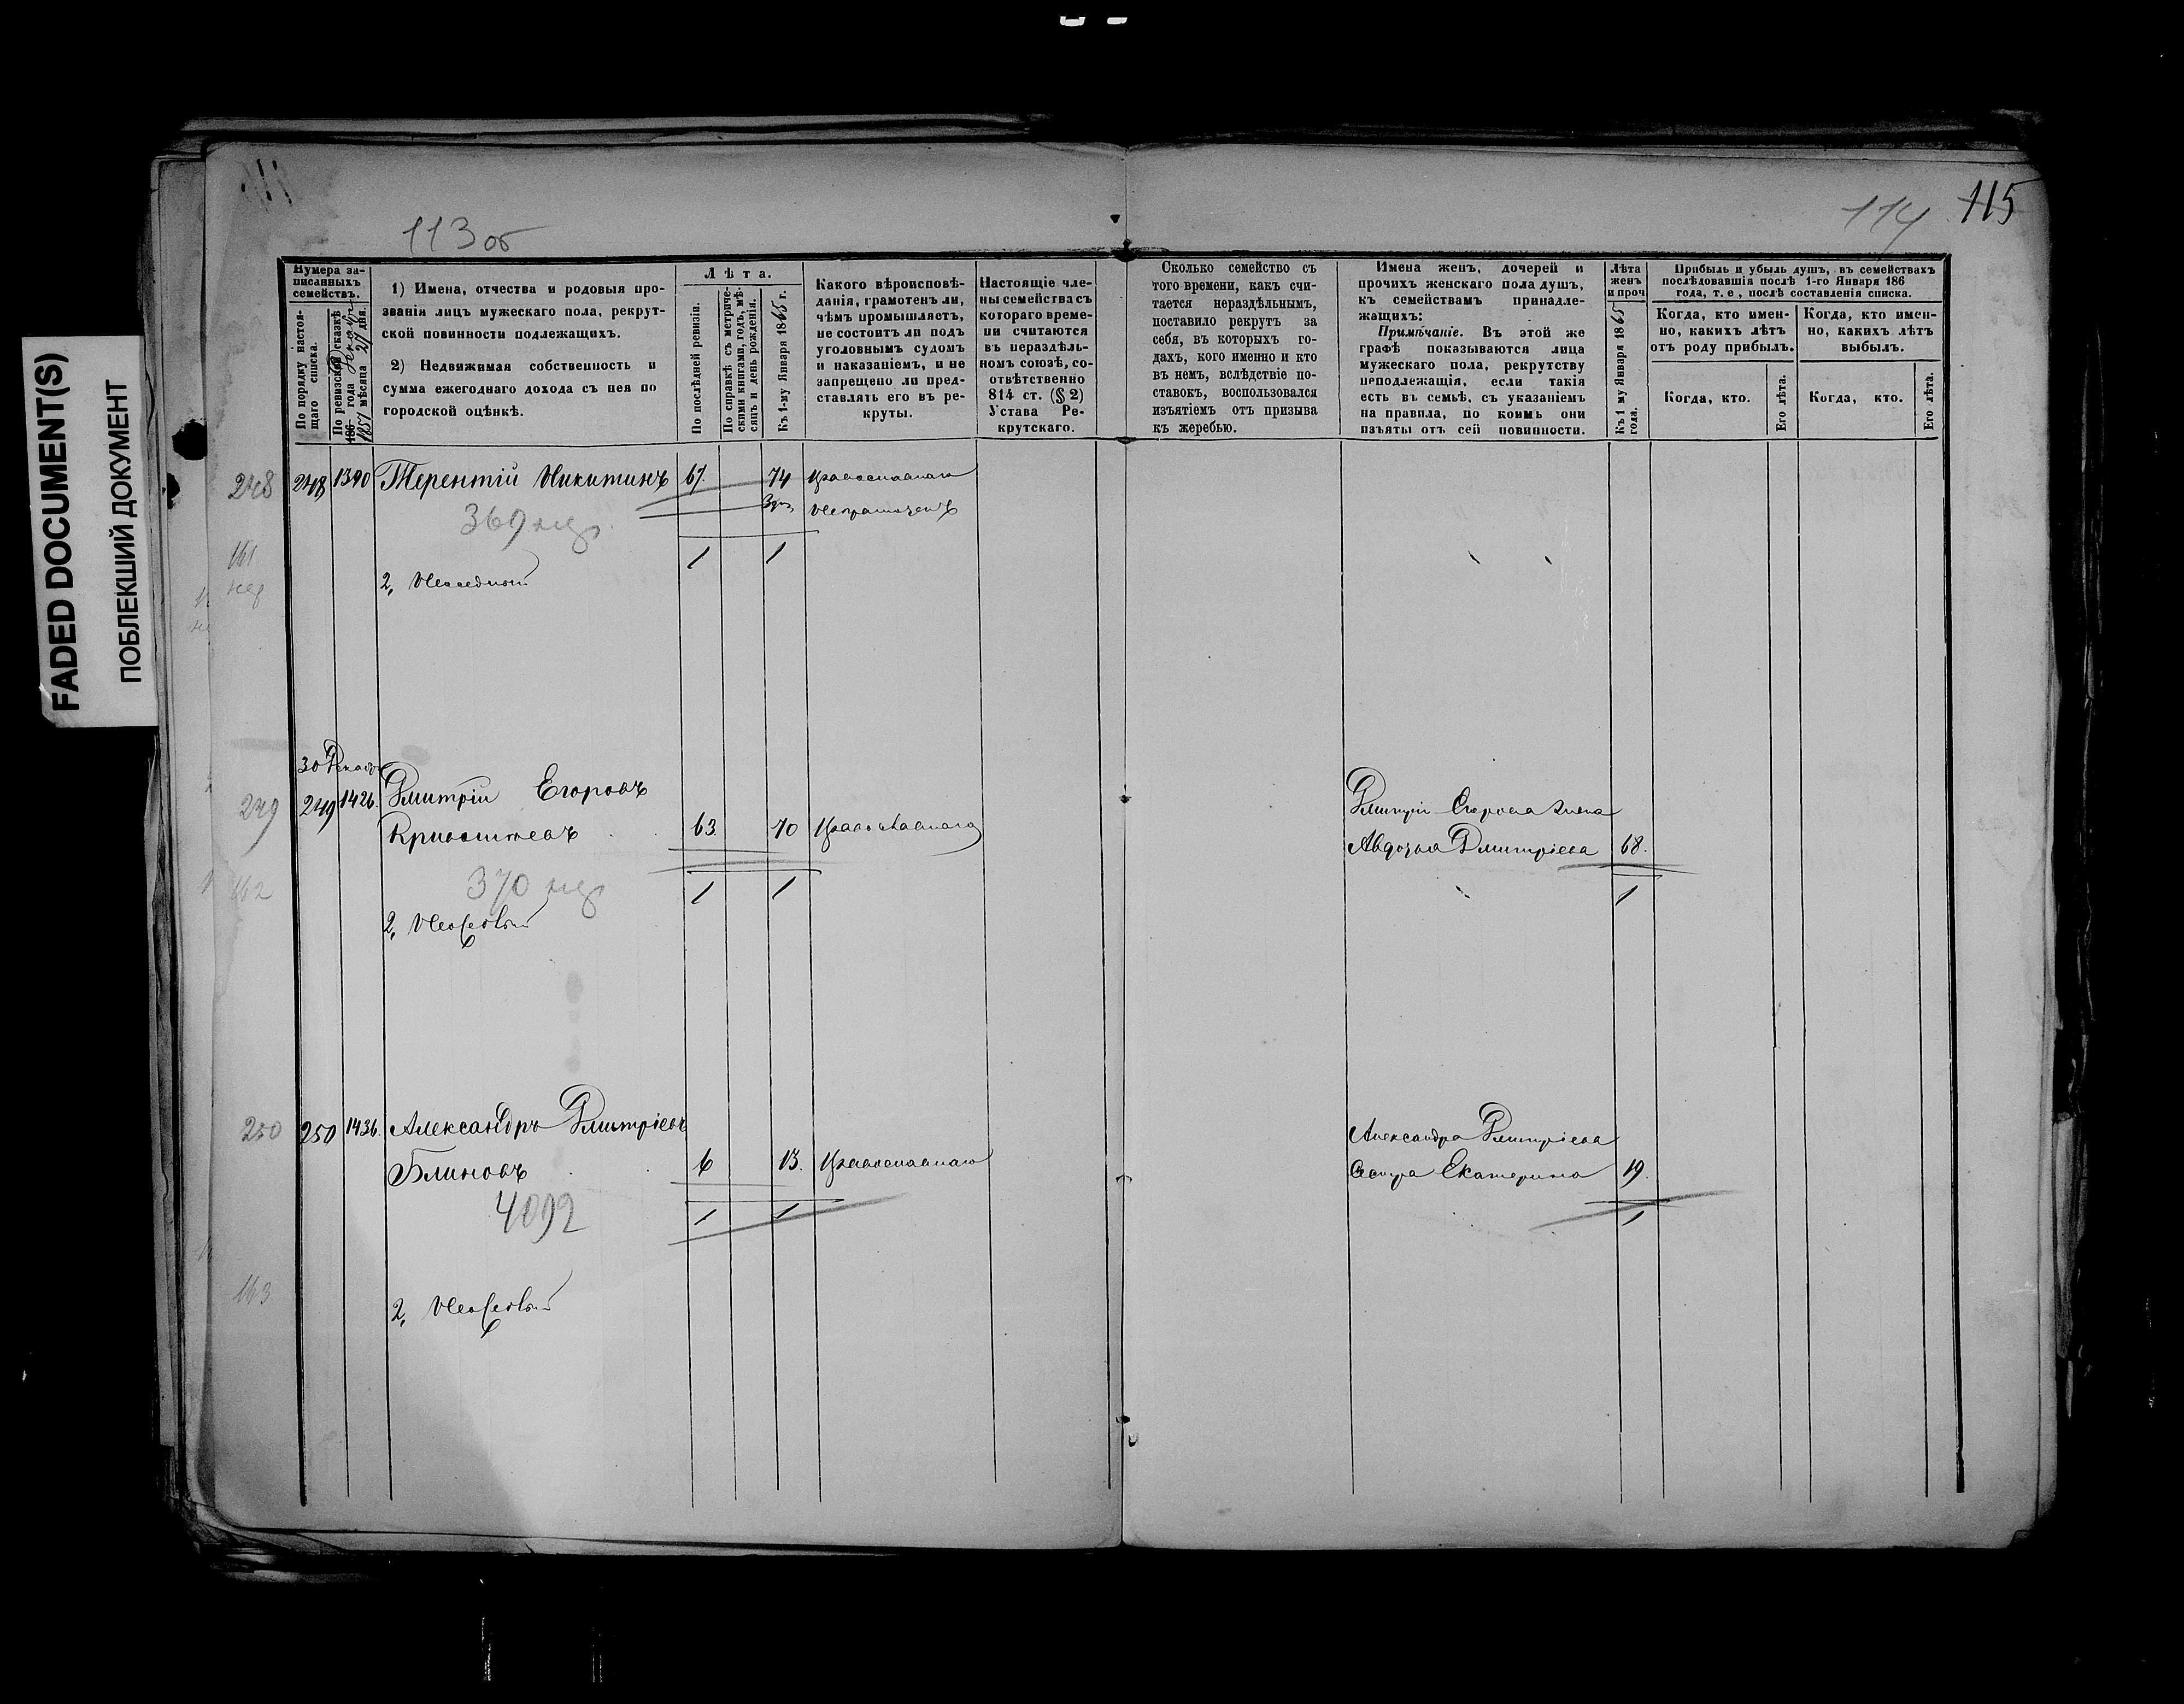 FADED DOCUMENT(S)
ПОБЛЕКШИЙ ДОКУМЕНТ
113 об
114 115
Нумера за-
писанныхъ
семействъ.
По порядку настоя-
щаго списка.
По ревизской сказкѣ
186 года
1857 мѣсяца 27 дня.
1) Имена, отчества и родовыя про-
званія лицъ мужескаго пола, рекрут-
ской повинности подлежащихъ.
2) Недвижимая собственность и
сумма ежегоднаго дохода съ нея по
городской оцѣнкѣ.
Лѣта.
По послѣдней ревизіи.
По справкѣ съ метриче-
скими книгами, годъ, мѣ-
сяцъ и день рожденія.
Къ 1-му Января 1865 г.
Какого вѣроисповѣ-
данія, грамотенъ ли,
чѣмъ промышляетъ,
не состоитъ ли подъ
уголовнымъ судомъ
и наказаніемъ, и не
запрещено ли пред-
ставлять его въ ре-
круты.
Настоящіе чле-
ны семейства съ
котораго време-
ни считаются
въ нераздѣль-
номъ союзѣ, со-
отвѣтственно
814 ст. (§ 2)
Устава Ре-
крутскаго.
Сколько семейство съ
того времени, какъ счи-
тается нераздѣльнымъ,
поставило рекрутъ за
себя, въ которыхъ го-
дахъ, кого именно и кто
въ немъ, вслѣдствіе по-
ставокъ, воспользовался
изъятіемъ отъ призыва
къ жеребью.
Имена женъ, дочерей и
прочихъ женскаго пола душъ,
къ семействамъ принадле-
жащихъ:
Примѣчаніе. Въ этой же
графѣ показываются лица
мужескаго пола, рекрутству
неподлежащія, если такія
есть въ семьѣ, съ указаніемъ
на правила, по коимъ они
изъяты отъ сей повинности.
Лѣта
женъ
и проч
Къ 1 му Января 1865
года.
Прибыль и убыль душъ, въ семействахъ
послѣдовавшія послѣ 1-го Января 186
года, т. е, послѣ составленія списка.
Когда, кто имен-
но, какихъ лѣтъ
отъ роду прибылъ.
Когда, кто имен-
но, какихъ лѣтъ
выбылъ.
Когда, кто.
Его лѣта.
Когда, кто.
Его лѣта.
248 248 1390 Терентій Никитинъ 67. 74 Православнаго
Неграмотенъ
369 нед
161
нед
1 1
2, Неоседлый
30 Декабр
249 249 1426. Дмитрій Егоровъ Дмитрія Егорова жена
Кривошеевъ 63. 70 Православнаго Авдотья Дмитріева 68.
162 370 нед 1 1 1
2, Неоседлый
250 250 1436. Александръ Дмитріевъ Александра Дмитріева
Блиновъ 6 13. Православнаго Сестра Екатерина 19.
4092 1 1 1
163
2, Неоседлый